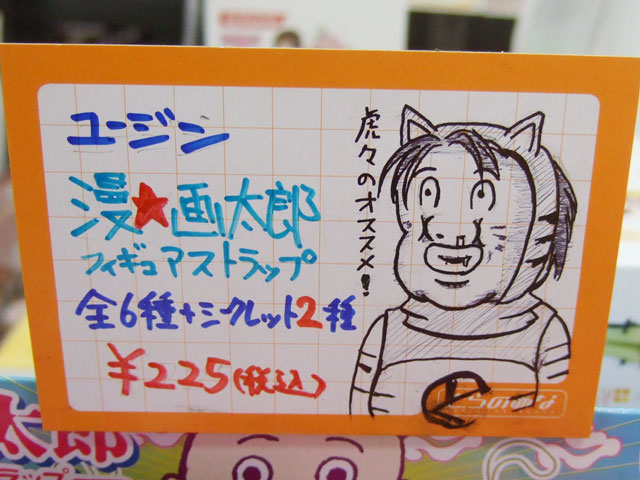 ユージン
漫★画太郎
フィギュアストラップ
全6種+シークレット2種
¥225(税込)
虎々のオススメ!
とらのあな
太郎
ラップ